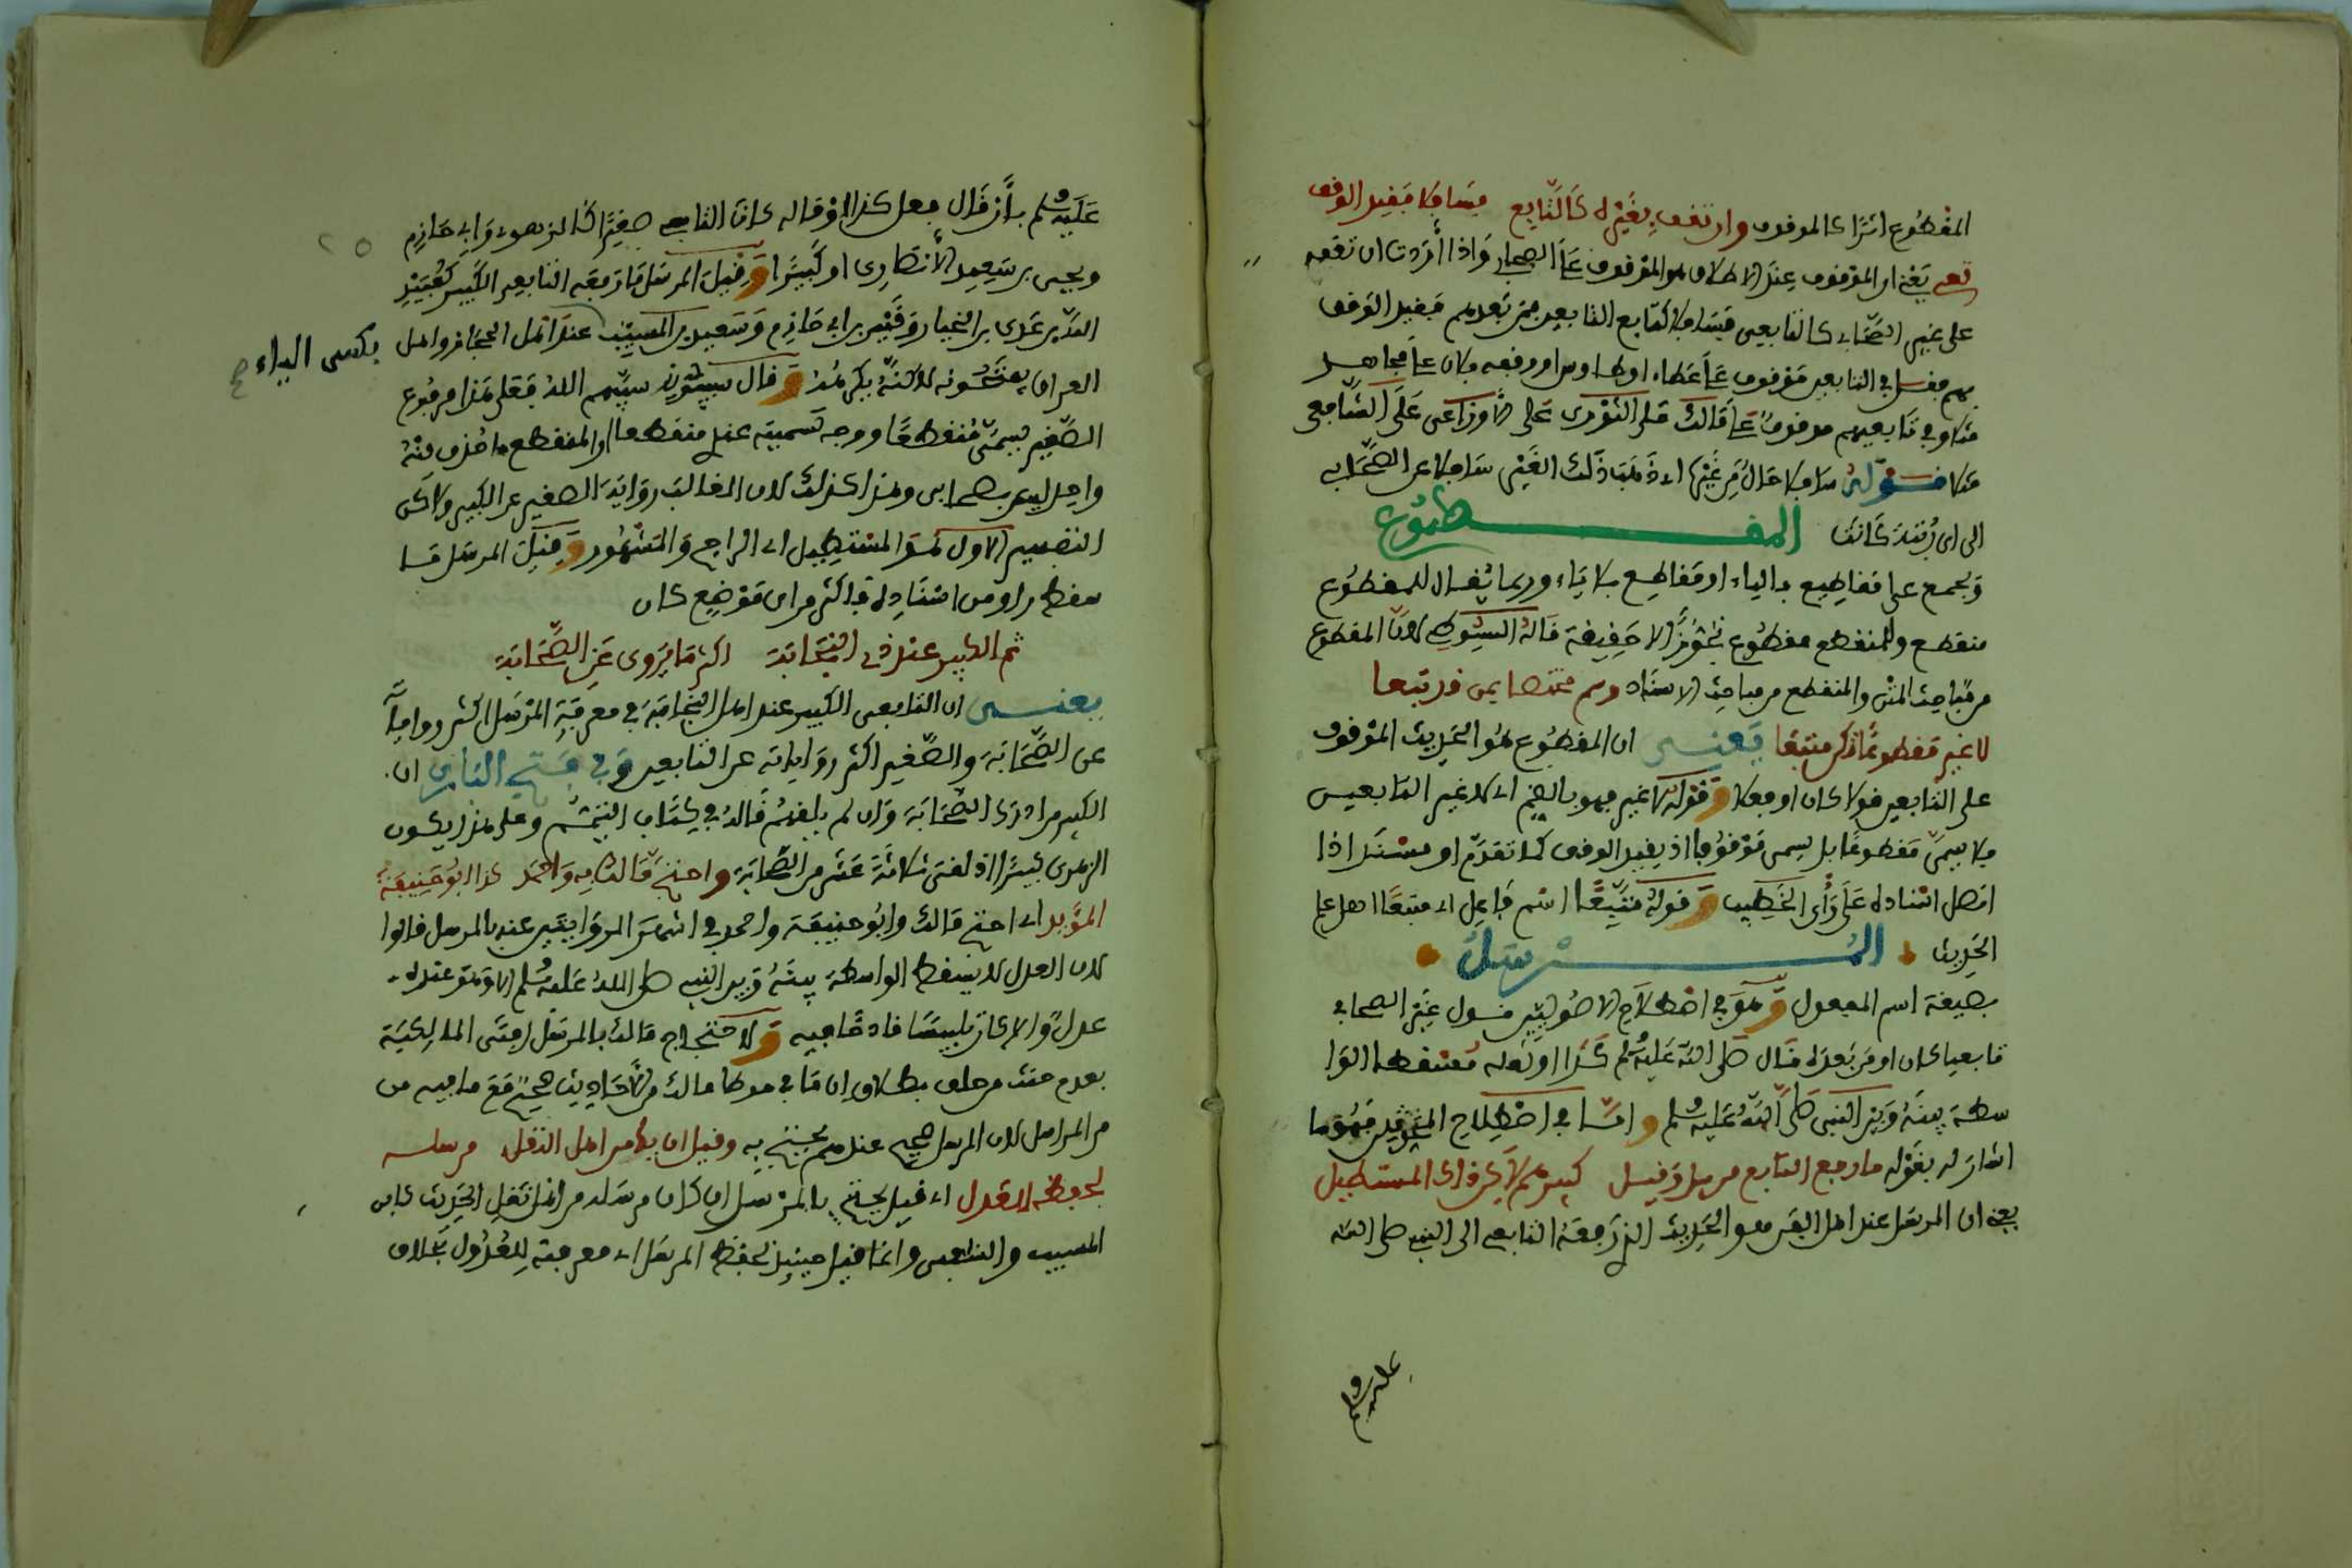 المقطوع اثرا كالموقوف وان تقف بغيره كالتابع مسافلا فقيد الوقف
تف يعني ان الموقوف عند الاطلاق هو الموقوف على الصحابي واذا اردت ان تقفه
على غير الصحابي كالتابعي فسافلا كتابع التابعين فمن بعدهم فقيد الوقف
بهم فقل في التابعين موقوف على عطاء او طاوس او وقفه فلان على مجاهد
مثلا وفي تابعيهم موقوف على مالك على الثوري على الاوزاعي على الشافعي
مثلا فقوله سافلا حال من غيره اي ذهبا ذلك الغير سافلا عن الصحابي
الى اي رتبة كانت المقطوع
ويجمع على مقاطيع بالياء او مقاطع بلا ياء وربما يقال للمقطوع
منقطع وللمنقطع مقطوع تجوزا لا حقيقة قاله السيوطي لان المقطوع
من مباحث المتن والمنقطع من مباحث الاسناد وسم مختصا بمن قد تبعا
لا غير مقطوعا فكن متبعا يعني ان المقطوع هو الحديث الموقوف
على التابعين قولا كان او فعلا وقوله لا غير فهو بالضم اي لا غير التابعيين
فلا يسمى مقطوعا بل يسمى موقوفا اذ يقيد الوقف كما تقدم او مسند اذا
اتصل اسناده على راي الخطيب وقوله متبعا اسم فاعل اي متبعا اهل علم
الحديث المرسل
بصيغة اسم المفعول وهو في اصطلاح الاصوليين قول غير الصحابي
تابعيا كان او من بعده قال صلى الله عليه وسلم كذا او فعله مسقطا الوا
سطة بينه وبين النبي صلى الله عليه وسلم واما في اصطلاح المحدثين فهو ما
اشار له بقوله ما رفع التابع مرسل وقيل كبيرهم لاكن ذاك المستطيل
يعني ان المرسل عند اهل الفن هو الحديث الذي رفعه التابعي الى النبي صلى الله
عليه وسلم
عليه وسلم بأن قال فعل كذا او قاله كان التابعي صغيرا كالزهري وابي حازم
ويحيى بن سعيد الأنصاري او كبيرا وقيل المرسل ما رفعه التابعي الكبير كعبيد
الله بن عدي بن الخيار وقيس بن ابي حازم وسعيد بن المسيب عند اهل الحجاز واهل
بكسر الياء صح
العراق يفتحونه لاكنه يكرهه وقال سيبوني سيبهم الله فعلى هذا مرفوع
الصغير يسمى منقطعا ووجه تسميته عندهم منقطعا ان المنقطع ما حذف منه
واحد ليس بصحابي وهذا كذلك لان الغالب رواية الصغير عن الكبير ولاكن
التعميم الاول هو المستطيل اي الراجح والمشهور وقيل المرسل ما
سقط راو من اسناده فاكثر من اي موضع كان
ثم الكبير عند ذي النجابة اكثر ما يروى عن الصحابة
يعني ان التابعي الكبير عند اهل النجابة في معرفة المرسل اكثر رواياته
عن الصحابة والصغير اكثر رواياته عن التابعين وفي فتح الباري ان
الكبير من ادرك الصحابة وان لم يلقهم قاله في كتاب التيمم وعلى هذا يكون
الزهري كبيرا اذ لقي ثلاثة عشر من الصحابة واحتج مالك به واحمد كذا ابو حنيفة
المؤيد اي احتج مالك وابو حنيفة واحمد في اشهر الروايتين عنه بالمرسل قالوا
لان العدل لا يسقط الواسطة بينه وبين النبي صلى الله عليه وسلم الا وهو عنده
عدل والا كان تلبيسا قادحا فيه ولاحتجاج مالك بالمرسل افتى المالكية
بعدم حنث من حلف بطلاق ان ما في موطا مالك من الاحاديث صحيح مع ما فيه من
من المراسل لان المرسل صحيح عندهم يحتج به وقيل ان يك من اهل النقل مرسله
لحفظه العدل اي قيل يحتج بالمرسل ان كان مرسله من ائمة نقل الحديث كابن
المسيب والشعبي وانما قيل حينئذ لحفظه المرسل اي معرفته للعدول بخلاف